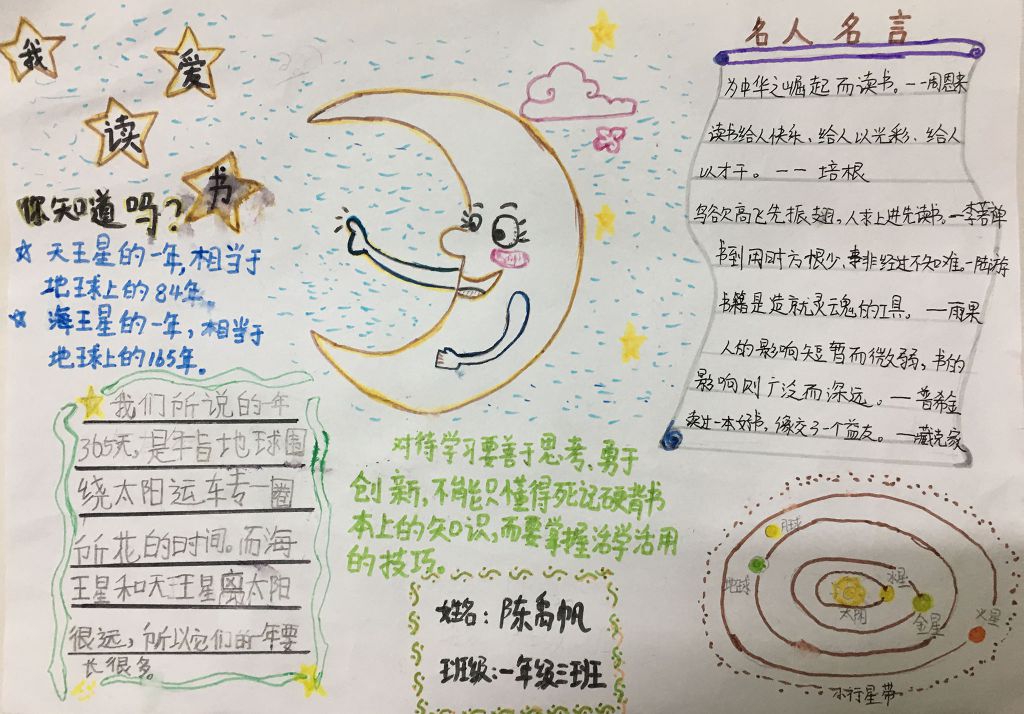 我爱读书
你知道吗？
☆ 天王星的一年，相当于
地球上的84年。
☆ 海王星的一年，相当于
地球上的165年。
我们所说的一年
365天，是年指地球围
绕太阳运转一圈
所花的时间。而海
王星和天王星离太阳
很远，所以它们的一年要
长很多。
对待学习要善于思考、勇于
创新，不能只懂得死记硬背书
本上的知识，而要掌握活学活用
的技巧。
姓名：陈禹帆
班级：一年级三班
名人名言
为中华之崛起而读书。——周恩来
读书给人快乐、给人以光彩、给人
以才干。——培根
鸟欲高飞先振翅，人求上进先读书。—李若单
书到用时方恨少、事非经过不知难。—陆游
书籍是造就灵魂的工具。—雨果
人的影响短暂而微弱，书的
影响则广泛而深远。—普希金
读过一本好书，像交了一个益友。—臧克家
月球
地球
水星
太阳
金星
火星
小行星带